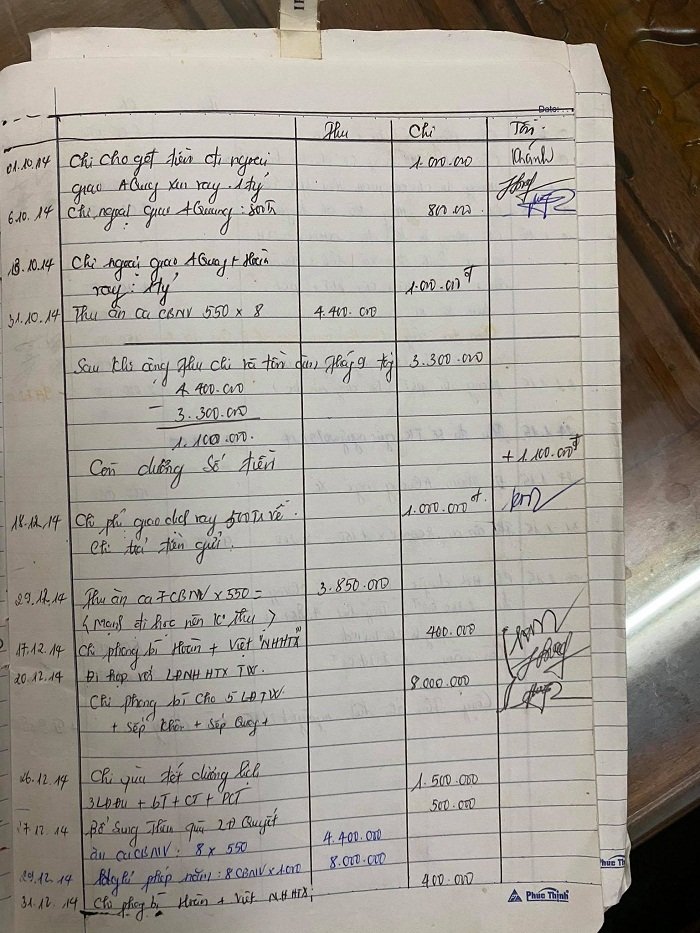 Date:
Thu Chi Tồn
01.10.14 Chi cho gót tiền đi ngoại 1.000.000 Khánh
giao A Quang xin vay. 1 tỷ
6.10.14 Chi ngoại giao A Quang: 800Tr 800.000
18.10.14 Chi ngoại giao A Quang + Hoàn
vay: 1 tỷ 1.000.000đ
31.10.14 Thu ăn ca CBNV 550 x 8 4.400.000
Sau khi cộng thu chi và tồn tháng 9 3.300.000
4.400.000
- 3.300.000
1.100.000.
Còn dương số tiền + 1.100.000đ
18.12.14 Chi phí giao dịch vay 500Tr về 1.000.000đ.
chi trả tiền gửi.
29.12.14 Thu ăn ca 7 CBNV x 550 = 3.850.000
(Mạnh đi học nên K° Thu)
17.12.14 Chi phong bì Hoàn + Việt "NHHTX" 400.000
20.12.14 Đi họp với LĐNHHTX TW.
Chi phong bì cho 5 LĐTW. 8.000.000
+ Sếp + Sếp Quang +
26.12.14 Chi quà tết dương lịch 1.500.000
3LĐĐU + BT + CT + PCT 500.000
27.12.14 Bổ sung Thêm quà LĐ Quyết
ăn ca CBNV: 8 x 550 4.400.000
29.12.14 Nghỉ phép năm: 8 CBNV x 1000 8.000.000
31.12.14 Chi phong bì Hoàn + Việt NHHTX; 400.000
Phúc Thịnh
Phúc Thịnh